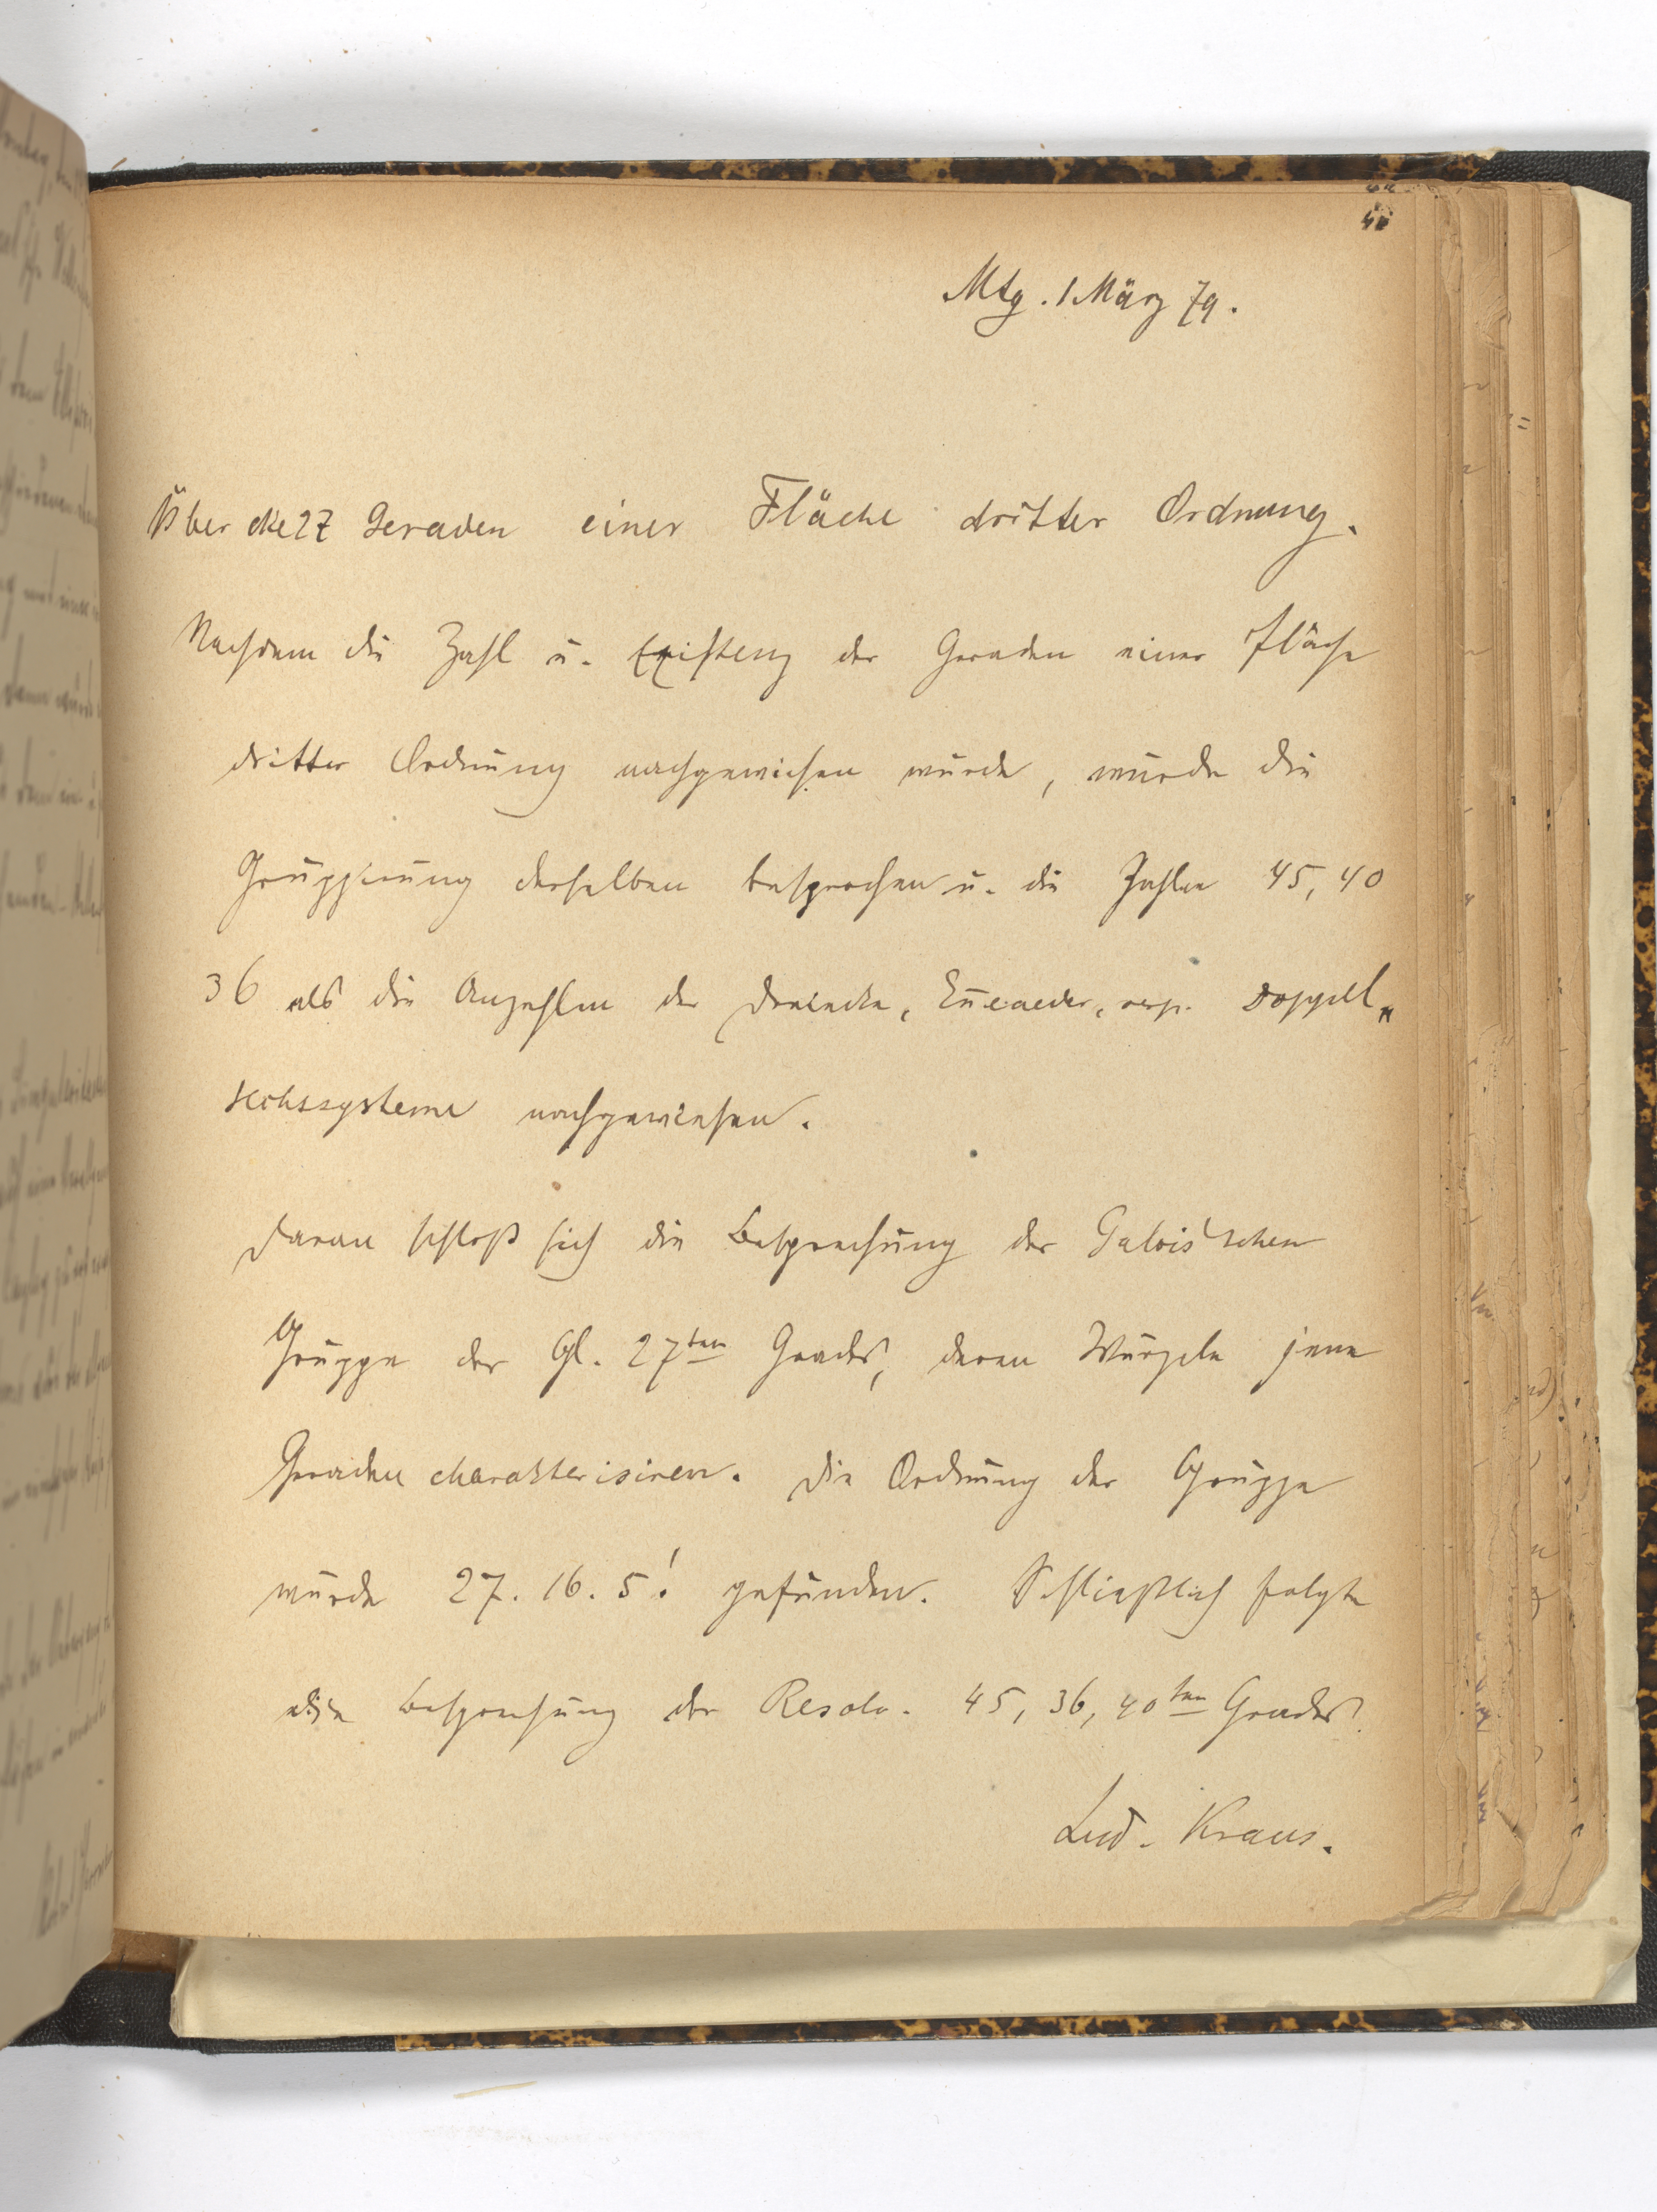 Mtg. 1 März 79.
Über die 27 Geraden einer Fläche dritter Ordnung.
Nachdem die Zahl u. Existenz der Geraden einer Fläche
dritter Ordnung nachgewiesen wurde, wurde die
Gruppirung derselben besprochen u. die Zahlen 45, 40
36 als die Anzahlen der Dreiecke, Enneaeder, resp. Doppel„
sechssysteme nachgewiesen.
Daran schloß sich die Besprechung der Galois'schen
Gruppe der Gl. 27ten Grades, deren Wurzeln jene
Geraden charakterisiren. Die Ordnung der Gruppe
wurde 27. 16. 5! gefunden. Schließlich folgte
die Besprechung der Resolv. 45, 36, 40ten Grades.
Lud. Kraus.